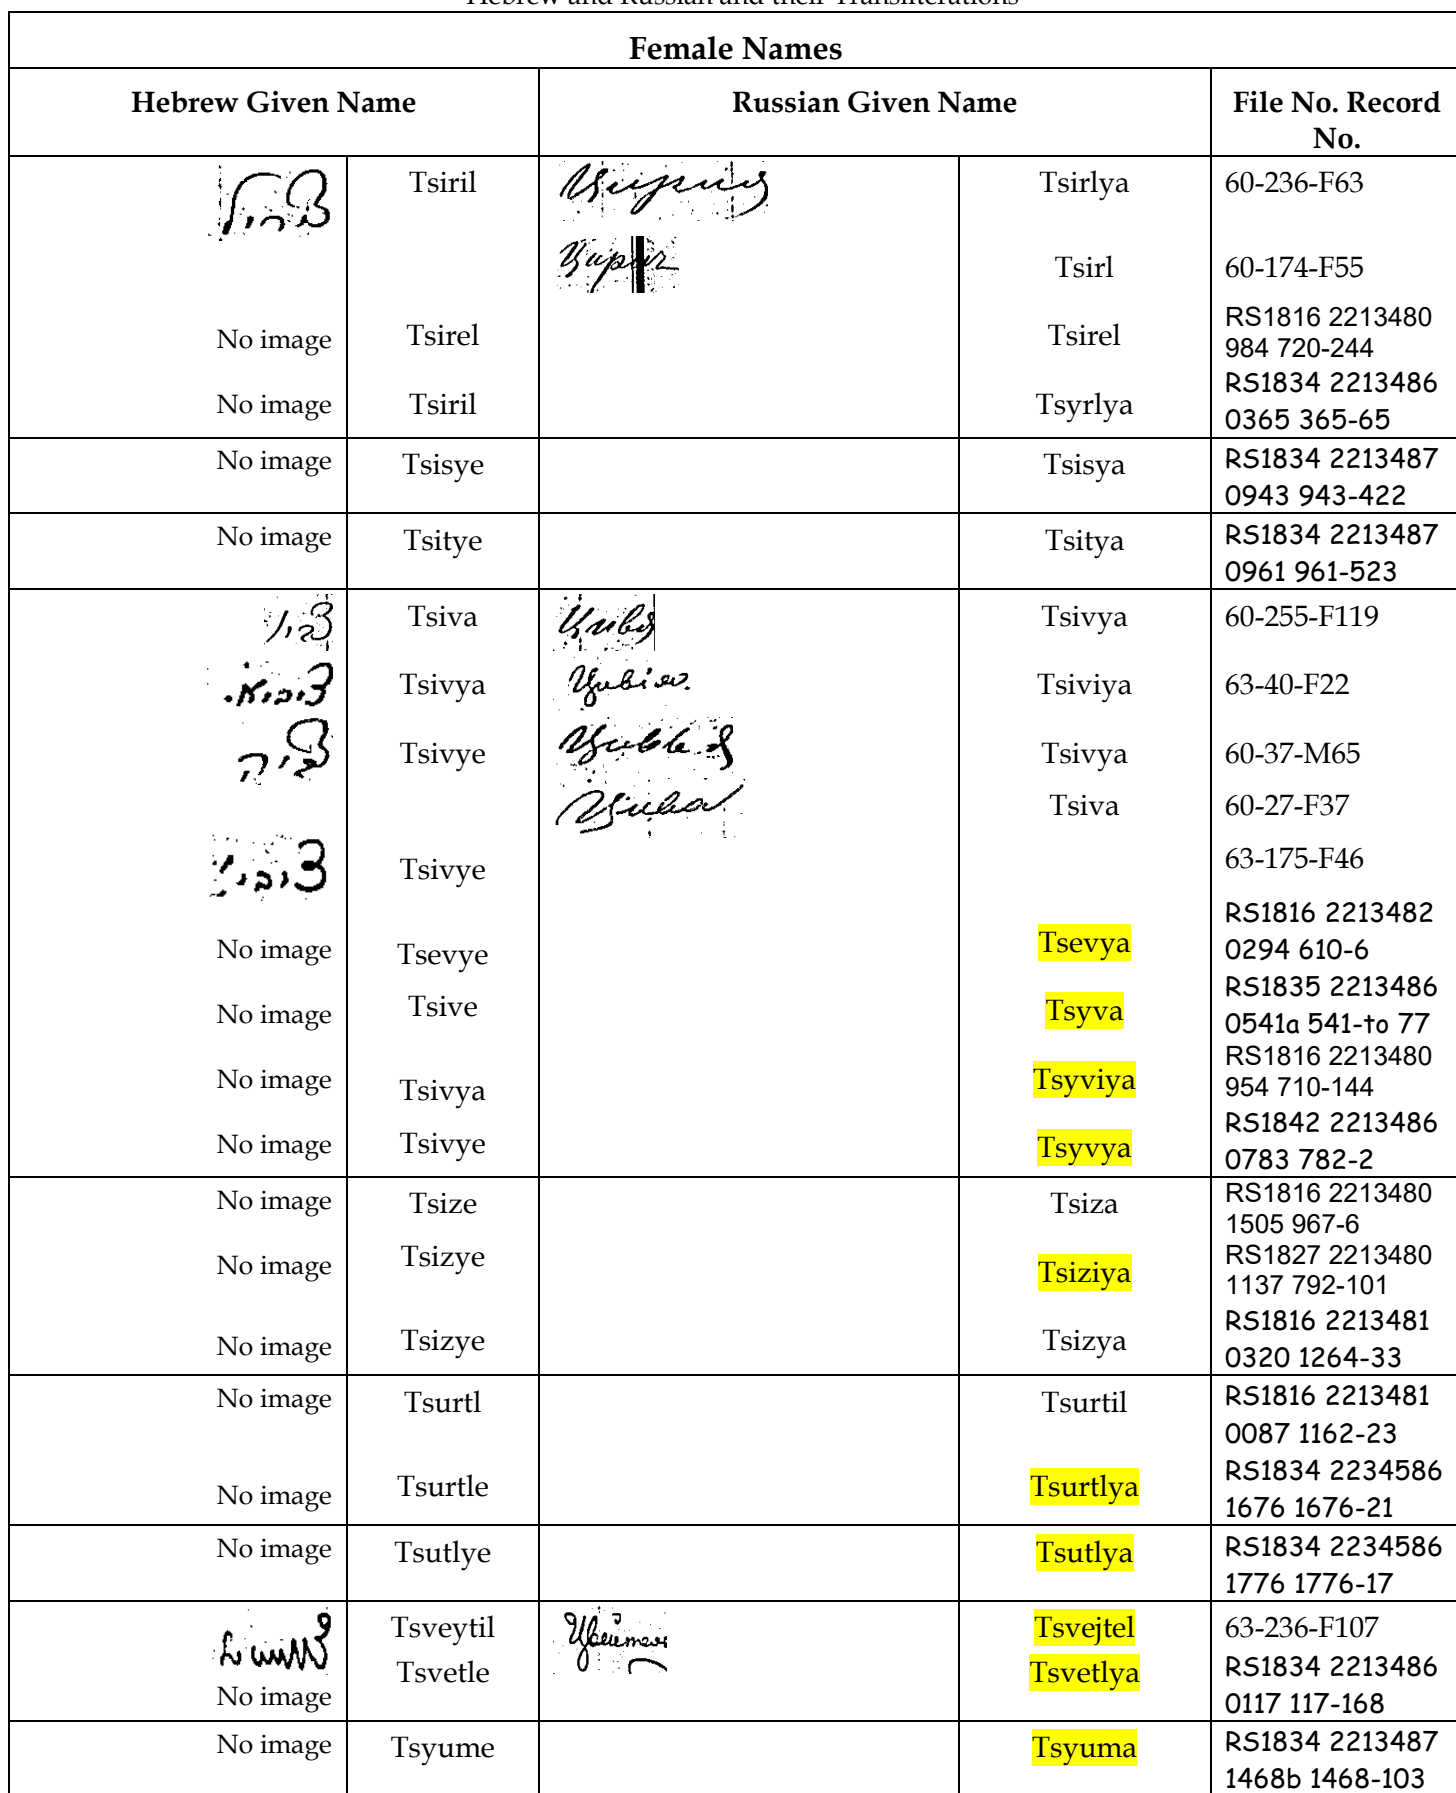 Hebrew and Russian and their Transliterations
Female Names
Hebrew Given Name Russian Given Name File No. Record No.
צירל Tsiril Tsirlya 60-236-F63
Tsirl 60-174-F55
No image Tsirel Tsirel RS1816 2213480
984 720-244
No image Tsiril Tsyrlya RS1834 2213486
0365 365-65
No image Tsisye Tsisya RS1834 2213487
0943 943-422
No image Tsitye Tsitya RS1834 2213487
0961 961-523
Tsiva Tsivya 60-255-F119
ציביא Tsivya Цивія Tsiviya 63-40-F22
צביה Tsivye Tsivya 60-37-M65
Цива Tsiva 60-27-F37
Tsivye 63-175-F46
No image Tsevye Tsevya RS1816 2213482
0294 610-6
No image Tsive Tsyva RS1835 2213486
0541a 541-to 77
No image Tsivya Tsyviya RS1816 2213480
954 710-144
No image Tsivye Tsyvya RS1842 2213486
0783 782-2
No image Tsize Tsiza RS1816 2213480
1505 967-6
No image Tsizye Tsiziya RS1827 2213480
1137 792-101
No image Tsizye Tsizya RS1816 2213481
0320 1264-33
No image Tsurtl Tsurtil RS1816 2213481
0087 1162-23
No image Tsurtle Tsurtlya RS1834 2234586
1676 1676-21
No image Tsutlye Tsutlya RS1834 2234586
1776 1776-17
Tsveytil Tsvejtel 63-236-F107
No image Tsvetle Tsvetlya RS1834 2213486
0117 117-168
No image Tsyume Tsyuma RS1834 2213487
1468b 1468-103